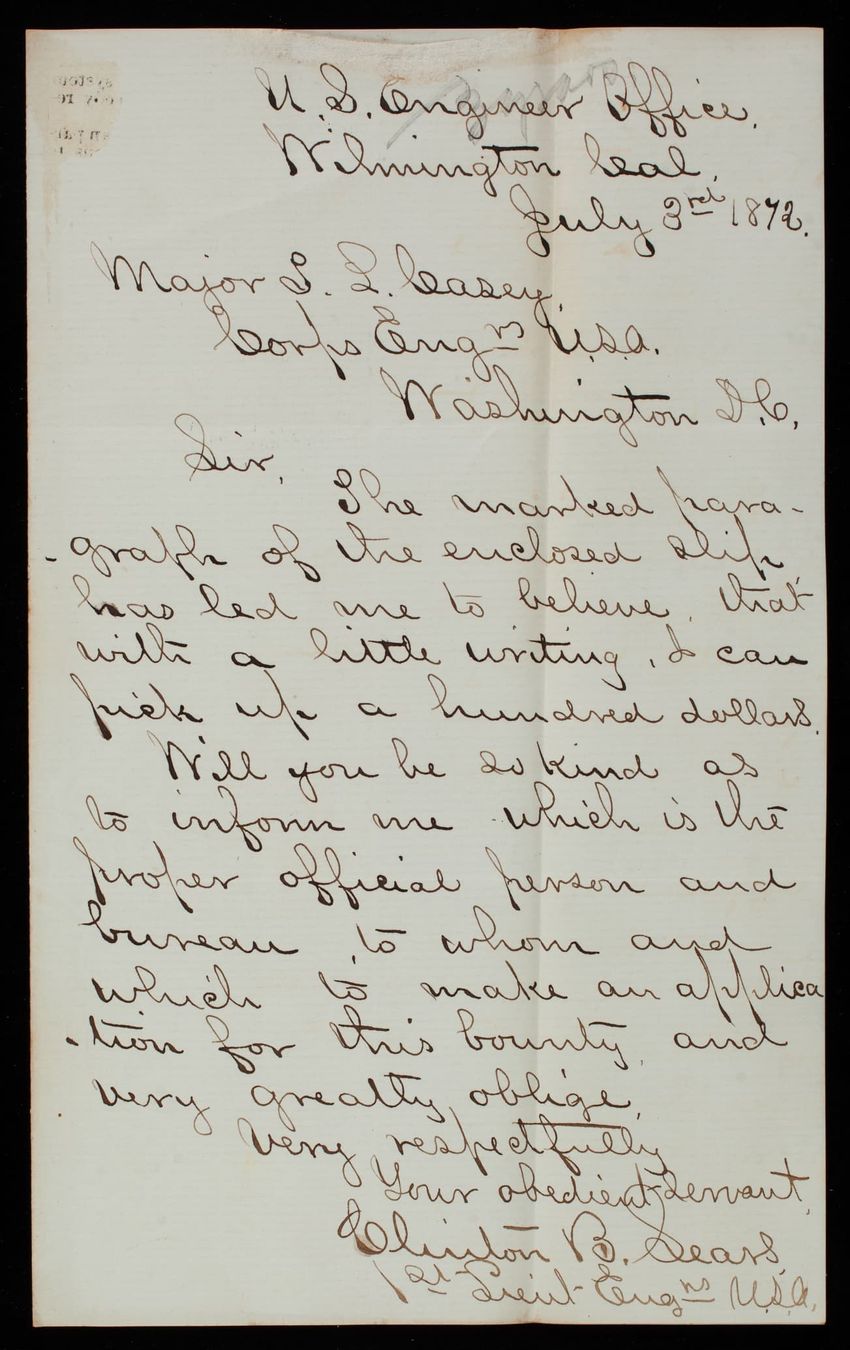 U. S. Engineer Office.
Wilmington Cal.
July 3rd 1872.
Major T. L. Casey,
Corps Engrs U.S.A.
Washington D.C.
Sir,
The marked para-
-graph of the enclosed slip
has led me to believe, that
with a little writing, I can
pick up a hundred dollars.
Will you be so kind as
to inform me which is the
proper official person and
bureau, to whom and
which to make an applica
-tion for this bounty, and
very greatly oblige,
Very respectfully
Your obedient servant,
Clinton B. Sears,
1st Lieut Engrs U.S.A.